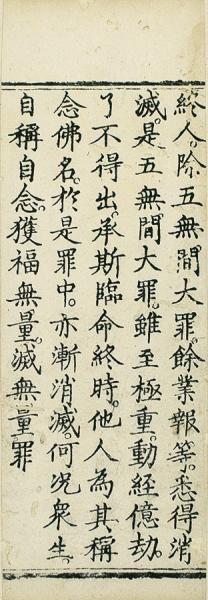 終人。除五無間大罪。餘業報等。悉得消
滅。是五無間大罪。雖至極重。動經億劫。
了不得出。承斯臨命終時。他人為其稱
念佛名。於是罪中。亦漸消滅。何况衆生。
自稱自念。獲福無量。滅無量罪